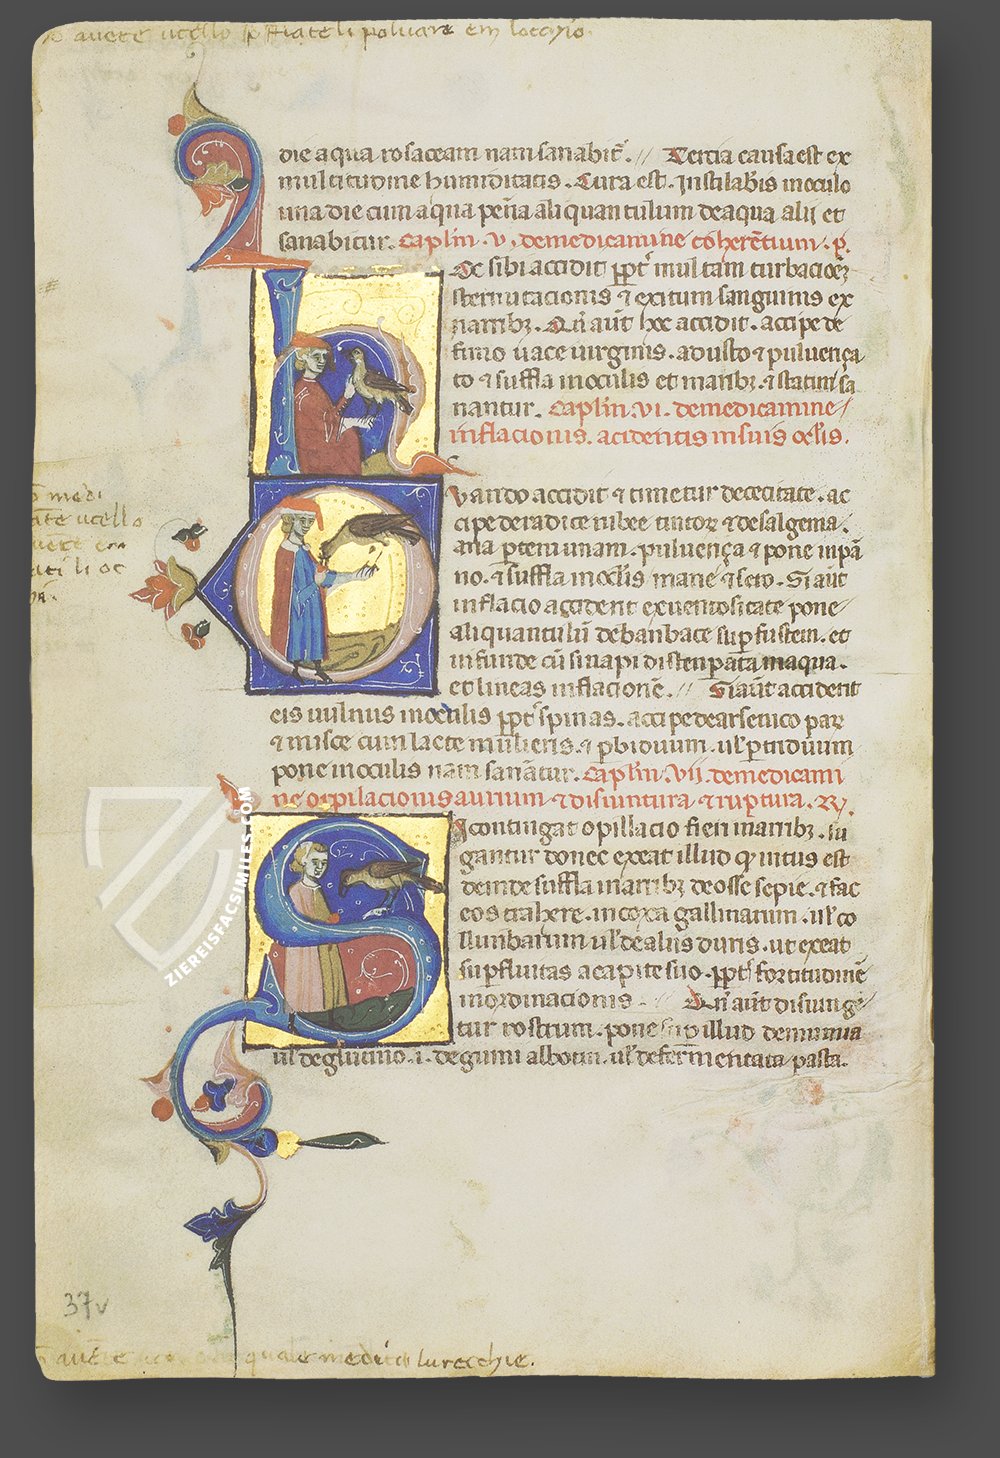 avete ucello
die aqua rosaceam nam sanabit̃. // Tercia causa est ex
multitudine humiditatis. Cura est. Instilabis inoculo
una die cum aqua
aliquantulum de aqua alii et
sanabitur. Caplm̃. v, de medicamine coherẽtium. p̱.
ec sibi accidit ppt̃ multam turbacioẽ
sternutacionis ⁊ exitum sanguinis ex
narribꝫ. Qñ aũt hoc accidit. accipe de
fimo vace virginis. adusto ⁊ pulueriça
to ⁊ suffla inoculis et narribꝫ. ⁊ statim sa
nantur. Caplm̃. vi. de medicamine
inflacionis. accidentis in suis oc̃lis.
Vando accidit ⁊ timetur de cecitate. ac
cipe de radice rubee tintoꝝ ⁊ de salgema.
ana partem unam. puluença ⁊ pone in pã
no. ⁊ suffla inoc̃lis mane ⁊ sero. Si aũt
inflacio accident ex uentositate pone
aliquantulũ de banbace sup̱ fustem. et
infunde cũ sinapi distenp̱ata in aqua.
et lineas inflacionẽ. // Si aũt accident
eis uulnus inoculis ppt̃ spinas. accipe de arsenico parꝝ
⁊ misce cum lacte mulieris. ⁊ p̱ biduum. ul̃ p̱ triduum
pone inoculis nam sanãtur. Caplm̃. vii. de medicami
ne opilacionis aurium ⁊ disiuntura ⁊ ruptura. ℞.
I contingat opillacio fieri inarribꝫ. su
gantur donec exeat illud qͥ intus est
deinde suffla inarribꝫ de osse sepie. ⁊ fac
eos trahere. in coxa gallinarum. ul̃ co
llunbarum ul̃ de aliis duris. ut exeat
sup̱fluitas a capite suo. ppt̃ fortitudinẽ
inordinacionis. Qñ aũt disiunge
tur rostrum. pone sup illud de mumia
ul̃ de glutino .i. de gumi albotin. ul̃ de fermentata pasta.
medi
ucello
37v
avete
quale medici lurecchie.
ZIEREISFACSIMILES.COM